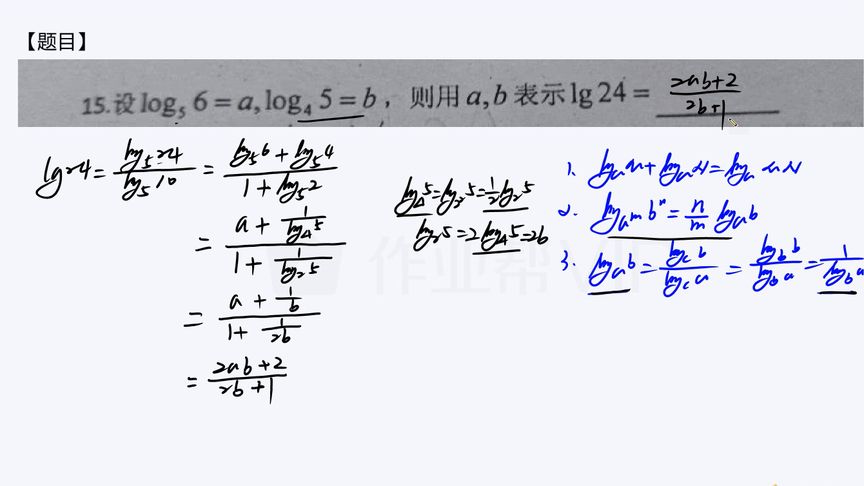 【题目】
15.设log₅ 6 = a, log₄ 5 = b， 则用 a, b 表示 lg 24 = (2ab+2)/(2b+1)
lg24 = log₅24/log₅10 = (log₅6 + log₅4)/(1 + log₅2)
= (a + 1/log₄5)/(1 + 1/log₂5)
= (a + 1/b)/(1 + 1/2b)
= (2ab+2)/(2b+1)
log₄5 = log₂²5 = 1/2 log₂5
log₂5 = 2log₄5 = 2b
1. logₐM + logₐN = logₐMN
2. log_{a^m} b^n = n/m logₐb
3. logₐb = log_c b/log_c a = log_b b/log_b a = 1/log_b a
作业帮VIP